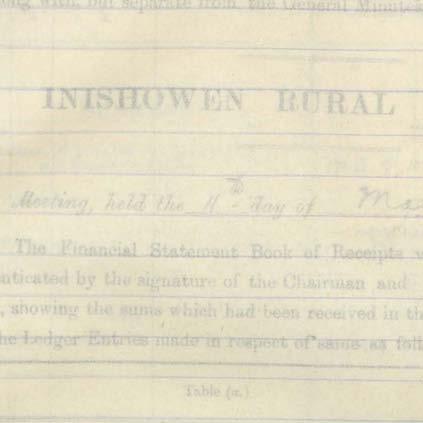 ong with, but separate from the General Minutes
INISHOWEN RURAL
Meeting, held the 11th day of May
The Financial Statement Book of Receipts w
enticated by the signature of the Chairman and
, showing the sums which had been received in th
he Ledger Entries made in respect of same as foll
Table (a.)